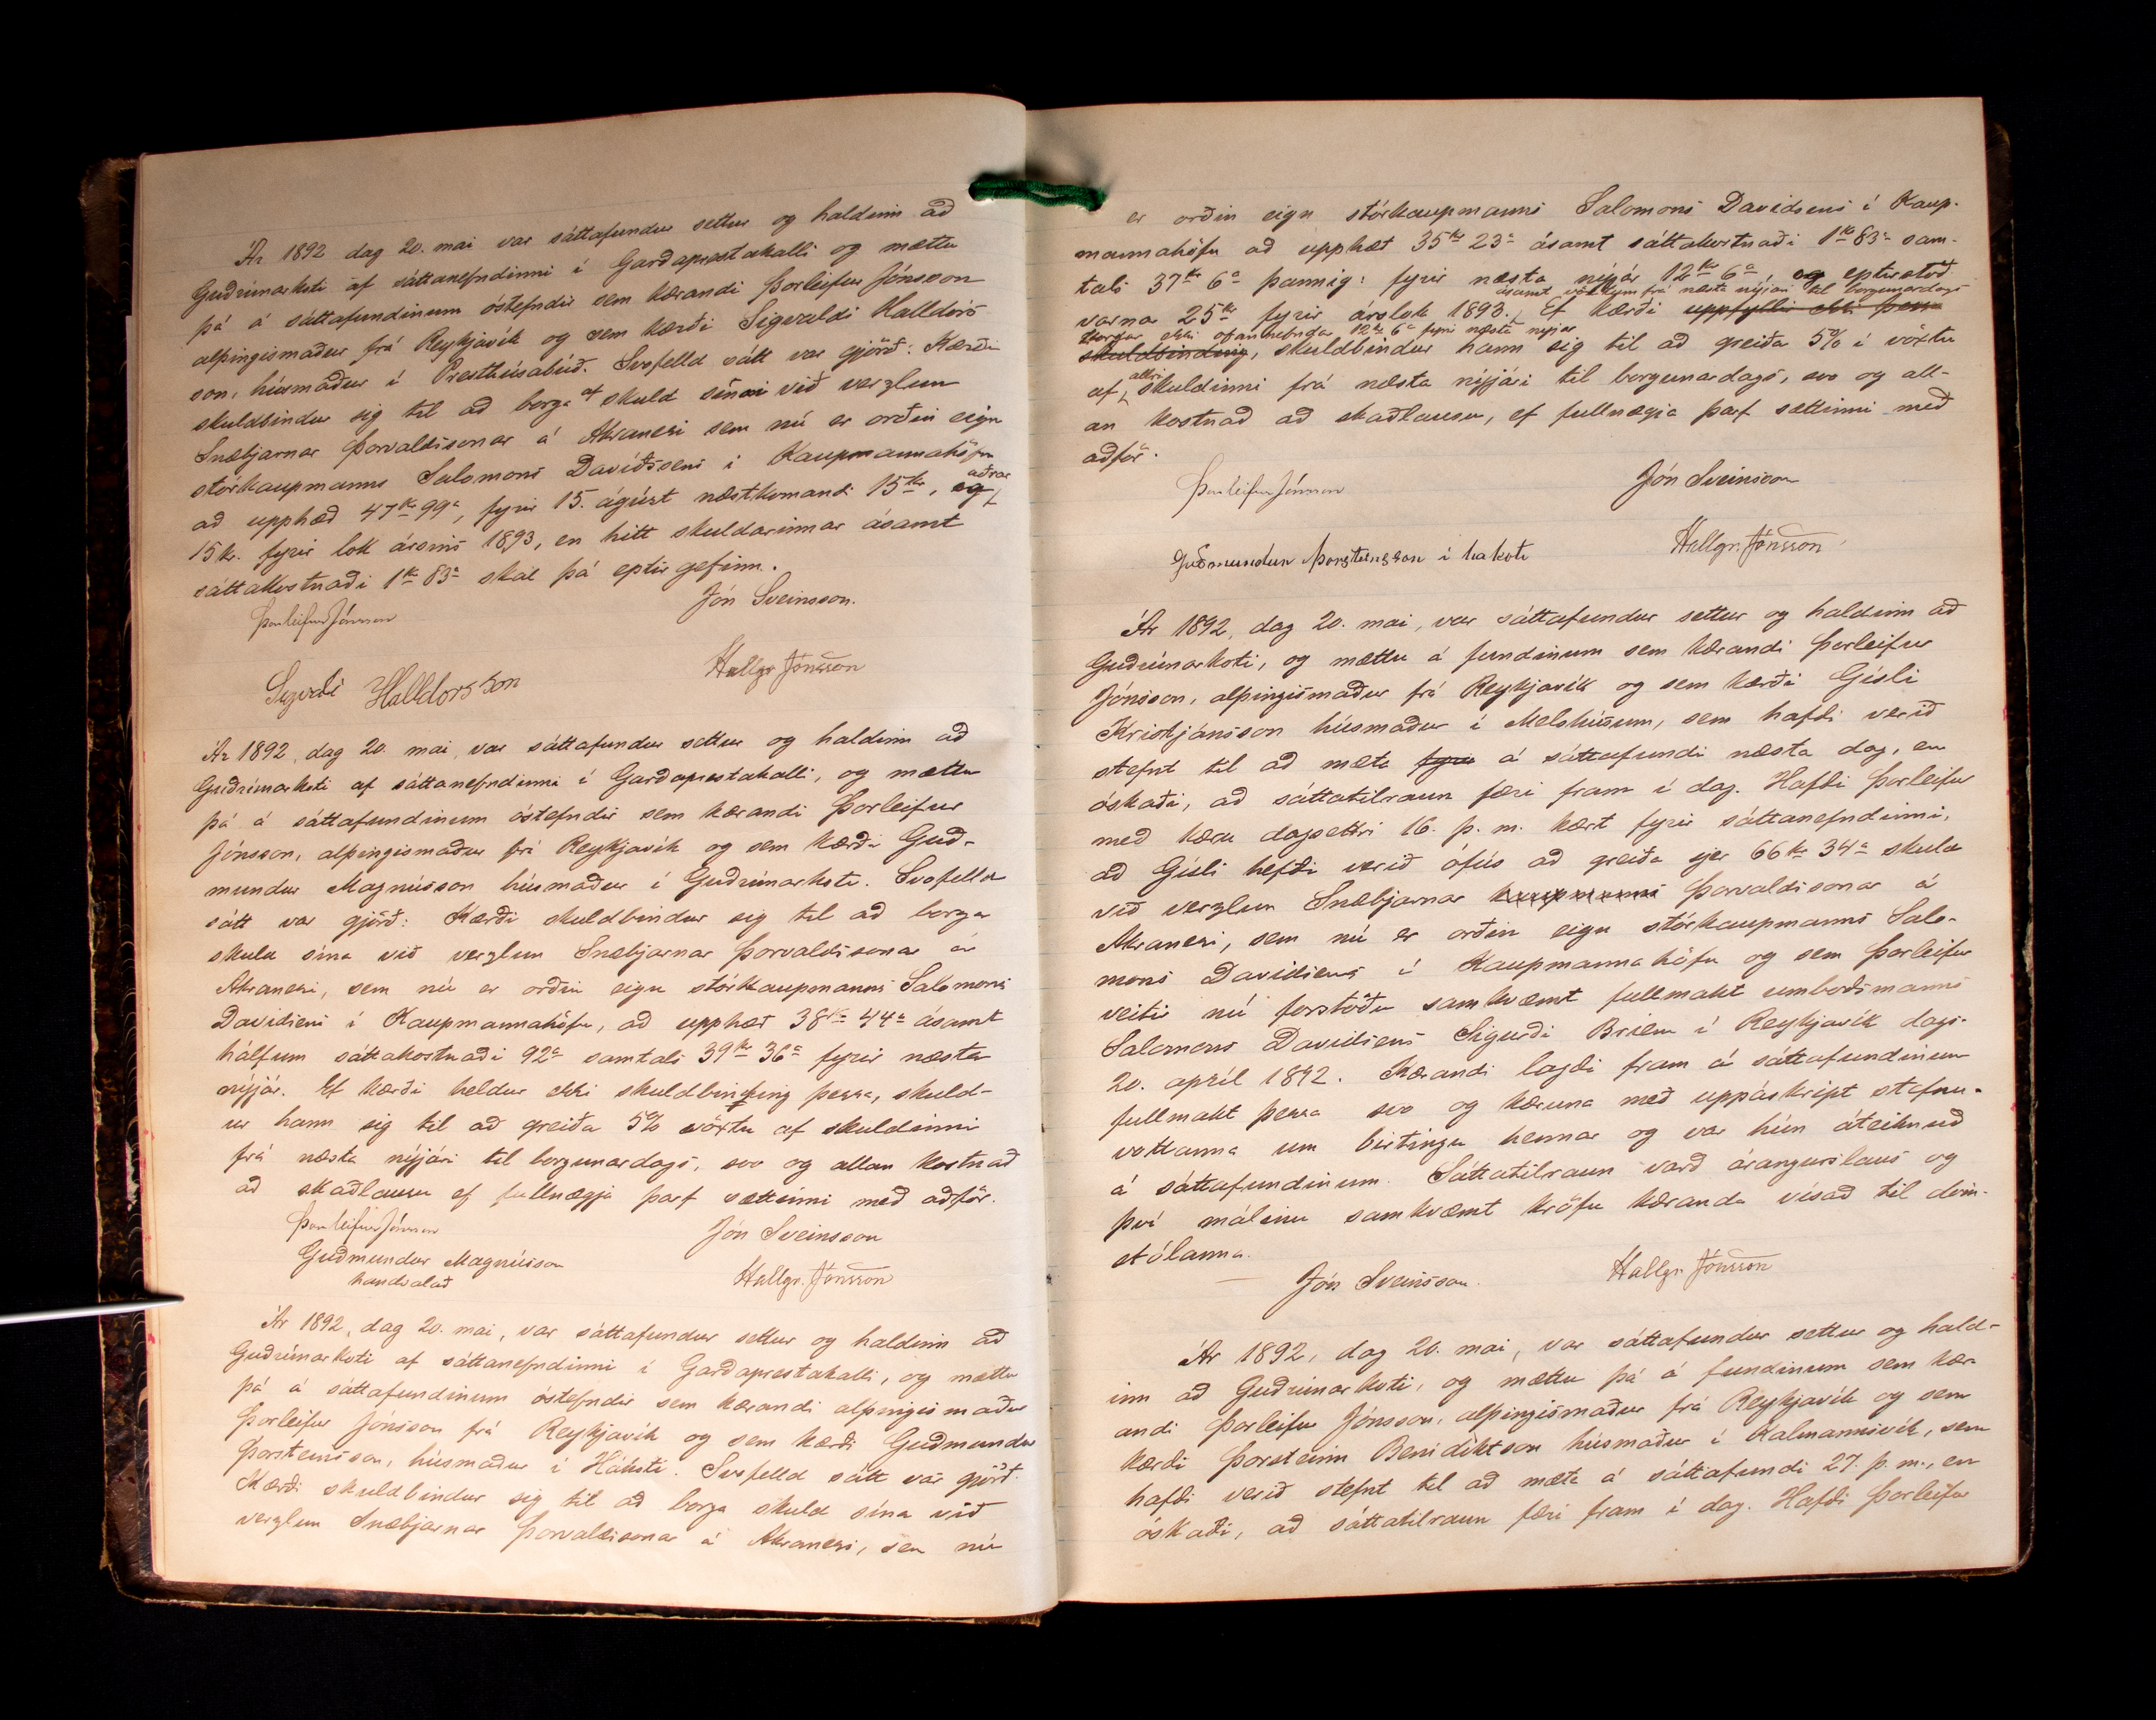 Ár 1892 dag 20. mai var sáttafundur settur og haldinn að
Guðrúnarkoti af sáttanefndinni í Garðaprestakalli og mættu
þá á sáttafundinum óstefndir sem kærandi Þorleifur Jónsson
alþingismaður frá Reykjavík og sem kærði Sigvaldi Halldórs
son, húsmaður í Presthúsabúð. Svofelld sátt var gjörð: Kærði
skuldbindur sig til að borga af skuld sinni við verzlun
Snæbjarnar Þorvaldssonar á Akranesi sem nú er orðin eign
stórkaupmanns Salomons Davíðsens í Kaupmannahöfn
að upphæð 47 kr 99 a, fyrir 15. ágúst næstkomandi 15 kr, og aðrar
15 kr. fyrir lok ársins 1893, en hitt skuldarinnar ásamt
sáttakostnaði 1 kr 83 a skal þá eptir gefinn.
Þorleifur Jónsson Jón Sveinsson.
Hallgr. Jónsson
Halldorsson
Ár 1892, dag 20. mai, var sáttafundur settur og haldinn að
Guðrúnarkoti af sáttanefndinni í Garðaprestakalli, og mættu
þá á sáttafundinum óstefndir sem kærandi Þorleifur
Jónsson, alþingismaður frá Reykjavík og sem kærði Guð-
mundur Magnússon húsmaður í Guðrúnarkoti. Svofelld
sátt var gjörð: Kærði skuldbindur sig til að borga
skuld sína við verzlun Snæbjarnar Þorvaldssonar á
Akranesi, sem nú er orðin eign stórkaupmanns Salomons
Davidsens í Kaupmannahöfn, að upphæð 38 kr 44 a ásamt
hálfum sáttakostnaði 92 a samtals 39 kr 36 a fyrir næsta
nýjár. Ef kærði heldur ekki skuldbinding þessa, skuld-
ur hann sig til að greiða 5% vöxtu af skuldinni
frá næsta nýjári til borgunardags, svo og allan kostnað
að skaðlausu ef fullnægja þarf sættinni með aðför.
Þorleifur Jónsson Jón Sveinsson
Guðmundur Magnússon
handsalað Hallgr. Jónsson
Ár 1892, dag 20. mai, var sáttafundur settur og haldinn að
Guðrúnarkoti af sáttanefndinni í Garðaprestakalli, og mættu
þá á sáttafundinum óstefndir sem kærandi alþingismaður
Þorleifur Jónsson frá Reykjavík og sem kærði Guðmundur
Þorsteinsson, húsmaður í Hákoti. Svofelld sátt var gjörð.
Kærði skuldbindur sig til að borga skuld sína við
verzlun Snæbjarnar Þorvaldssonar á Akranesi, sem nú
er orðin eign stórkaupmanns Salomons Davidsens í Kaup-
mannahöfn að upphæð 35 kr 23 a ásamt sáttakostnaði 1 kr 83 a sam-
tals 37 kr 6 a þannig: fyrir næsta nýjár 12 kr 6 a, og eptirstöð
ásamt vöxtum frá næsta nýjári til borgunardags
varna 25 kr fyrir árslok 1893. Ef kærði uppfyllir ekki þessa
borgar ekki ofannefnda 12 kr 6 a fyrir næsta nýjár
skuldbinding, skuldbindur hann sig til að greiða 5% í vöxtu
af allri skuldinni frá næsta nýjári til borgunardags, svo og all-
an kostnað að skaðlausu, ef fullnægja þarf sættinni með
aðför.
Þorleifur Jónsson Jón Sveinsson
Guðmundur Þorsteinsson í hakoti Hallgr. Jónsson
Ár 1892, dag 20. mai, var sáttafundur settur og haldinn að
Guðrúnarkoti, og mættu á fundinum sem kærandi Þorleifur
Jónsson, alþingismaður frá Reykjavík og sem kærði Gísli
Kristjánsson húsmaður í Melshúsum, sem hafði verið
stefnt til að mæta fyrir á sáttafundi næsta dag, en
óskaði, að sáttatilraun færi fram í dag. Hafði Þorleifur
með kæru dagsettri 16. þ. m. kært fyrir sáttanefndinni,
að Gísli hefði verið ófús að greiða sjer 66 kr 34 a skuld
við verzlun Snæbjarnar kaupmanns Þorvaldssonar á
Akranesi, sem nú er orðin eign stórkaupmanns Salo-
mons Davidsens í Kaupmannahöfn og sem Þorleifur
veitir nú forstöðu samkvæmt fullmakt umboðsmanns
Salomons Davidsens Sigurði Briem í Reykjavík dags.
20. apríl 1892. Kærandi lagði fram á sáttafundinum
fullmakt þessa svo og kæruna með uppáskript stefnu-
vottanna um birtingu hennar og var hún áteiknuð
á sáttafundinum. Sáttatilraun varð árangurslaus og
því málinu samkvæmt kröfu kæranda vísað til dóm-
stólanna.
Jón Sveinsson. Hallgr. Jónsson
Ár 1892, dag 20. mai, var sáttafundur settur og hald-
inn að Guðrúnarkoti, og mættu þá á fundinum sem kær
andi Þorleifur Jónsson, alþingismaður frá Reykjavík og sem
kærði Þorsteinn Benidiktsson húsmaður í Kalmannsvík, sem
hafði verið stefnt til að mæta á sáttafundi 27. þ. m., en
óskaði, að sáttatilraun færi fram í dag. Hafði Þorleifur